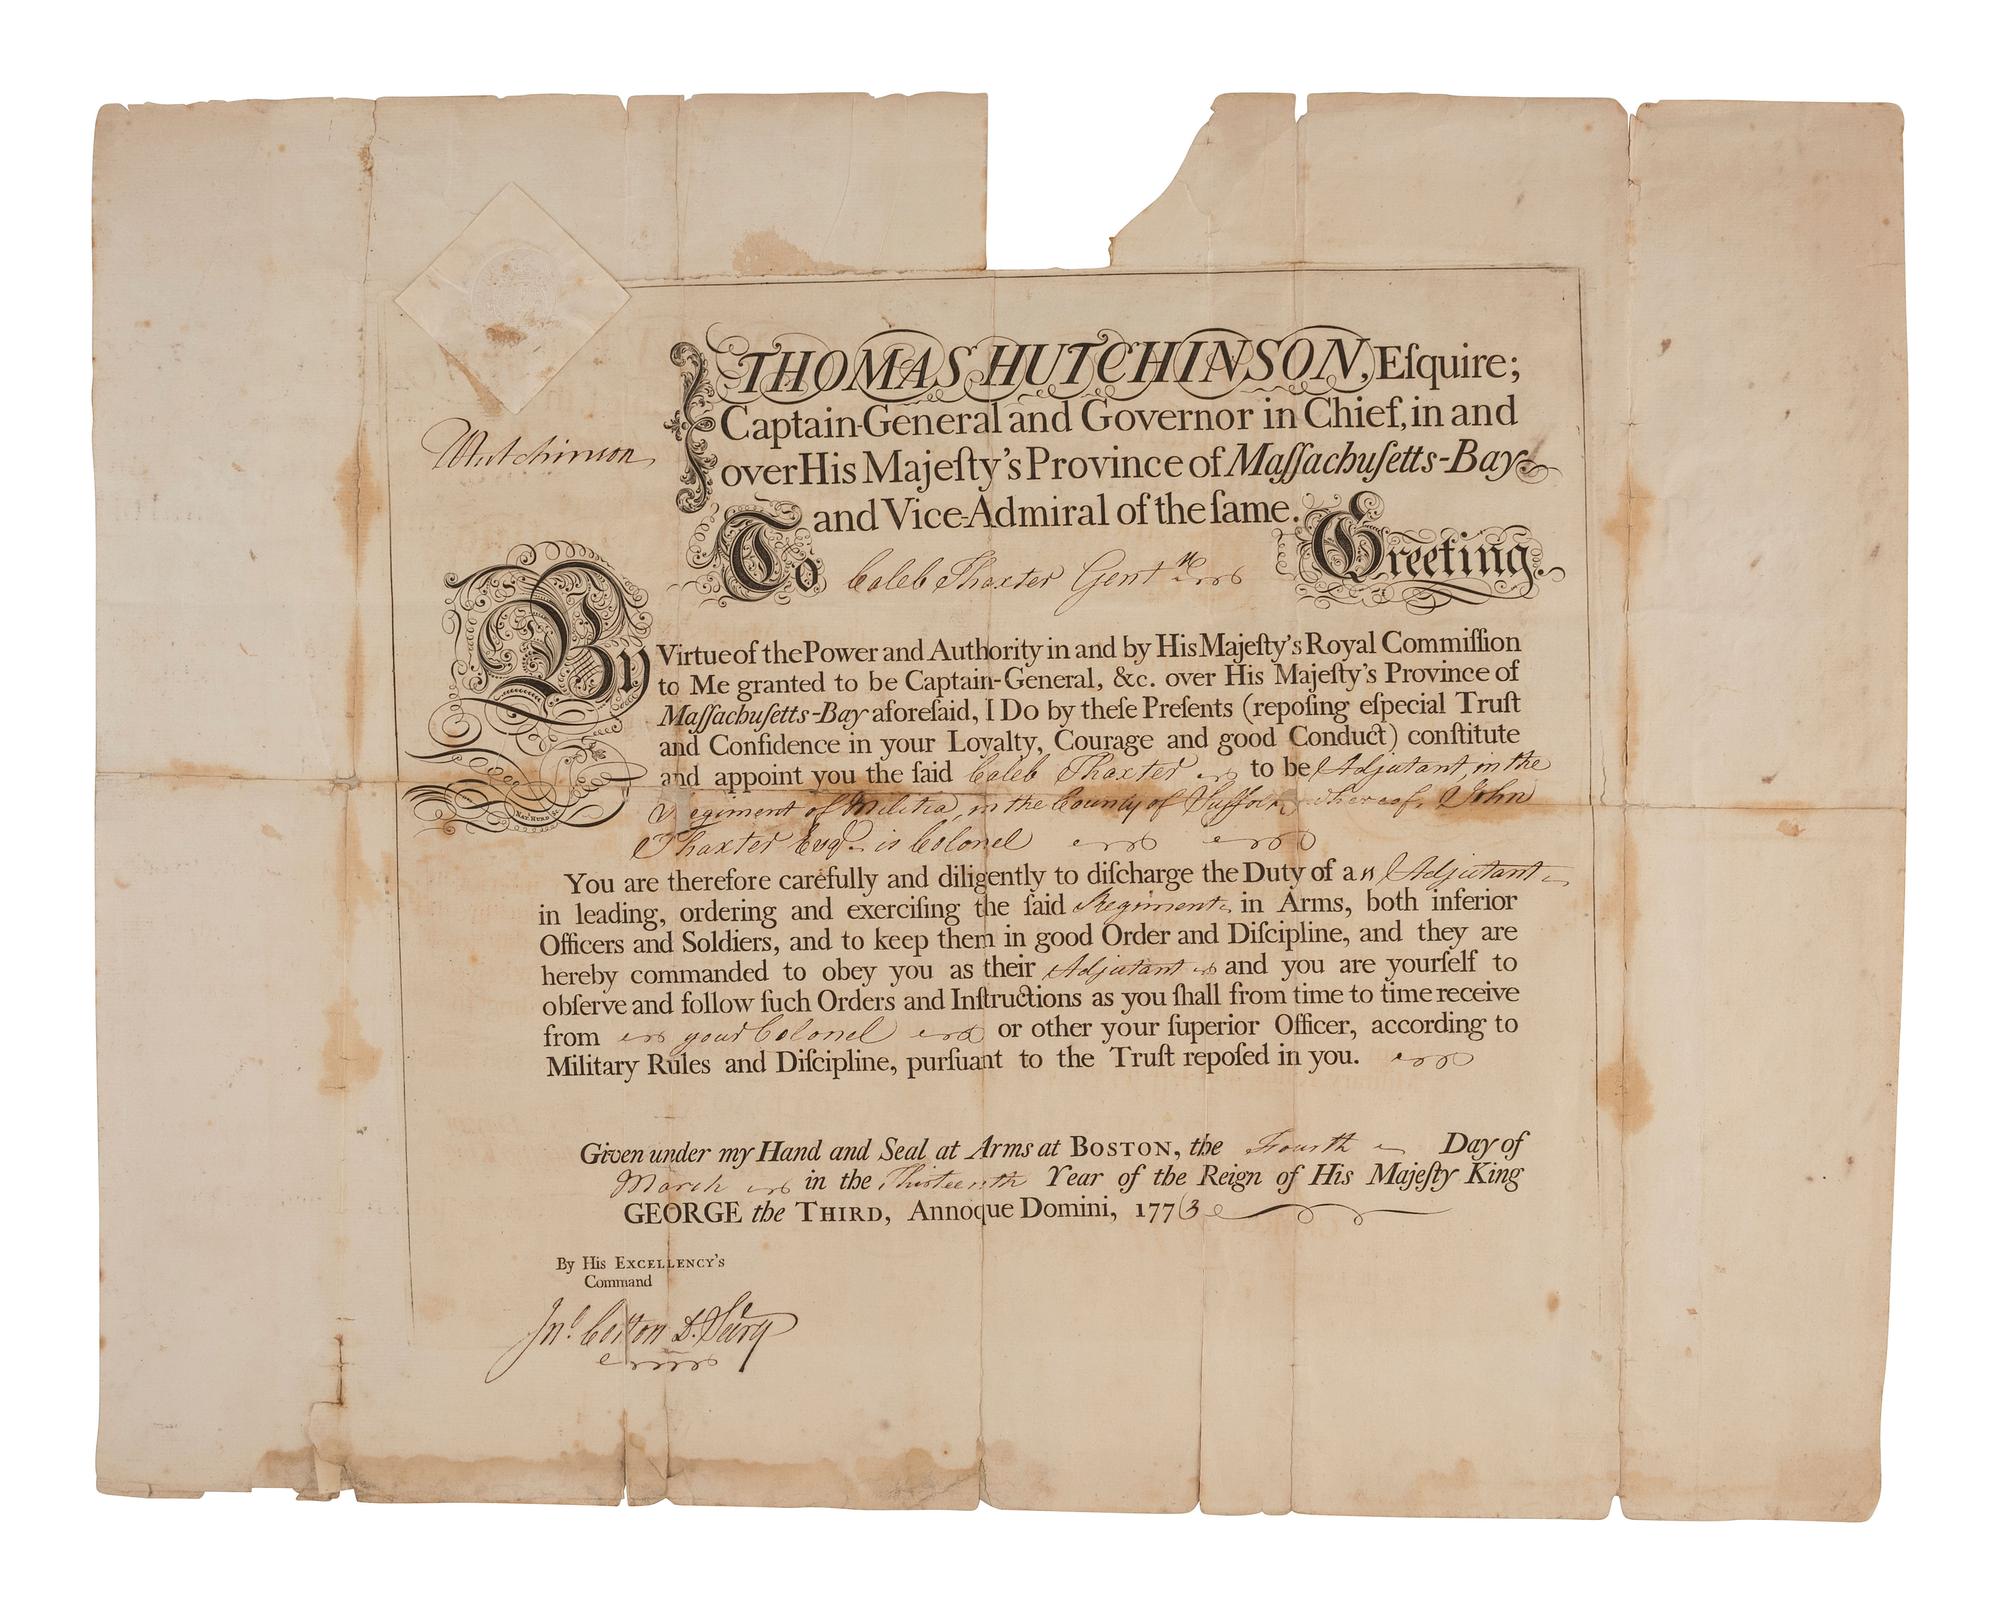 THOMAS HUTCHINSON, Eſquire;
Captain-General and Governor in Chief, in and
over His Majeſty's Province of Maſſachuſetts-Bay
and Vice-Admiral of the ſame.
THutchinson
To Caleb Thaxter Gent.ⁿ Greeting.
By Virtue of the Power and Authority in and by His Majeſty's Royal Commiſſion
to Me granted to be Captain-General, &c. over His Majeſty's Province of
Maſſachuſetts-Bay aforeſaid, I Do by theſe Preſents (repoſing eſpecial Truſt
and Confidence in your Loyalty, Courage and good Conduct) conſtitute
and appoint you the ſaid Caleb Thaxter to be Adjutant, in the
Regiment of Militia, in the County of Suffolk, whereof, John
Thaxter Esqr. is Colonel
NAT. HURD
You are therefore carefully and diligently to diſcharge the Duty of a n Adjutant
in leading, ordering and exerciſing the ſaid Regiment in Arms, both inferior
Officers and Soldiers, and to keep them in good Order and Diſcipline, and they are
hereby commanded to obey you as their Adjutant and you are yourſelf to
obſerve and follow ſuch Orders and Inſtructions as you ſhall from time to time receive
from your Colonel or other your ſuperior Officer, according to
Military Rules and Diſcipline, purſuant to the Truſt repoſed in you.
Given under my Hand and Seal at Arms at BOSTON, the Fourth Day of
March in the Thirteenth Year of the Reign of His Majeſty King
GEORGE the THIRD, Annoque Domini, 1773
By His EXCELLENCY'S
Command
Jnº. Cotton D. Secry